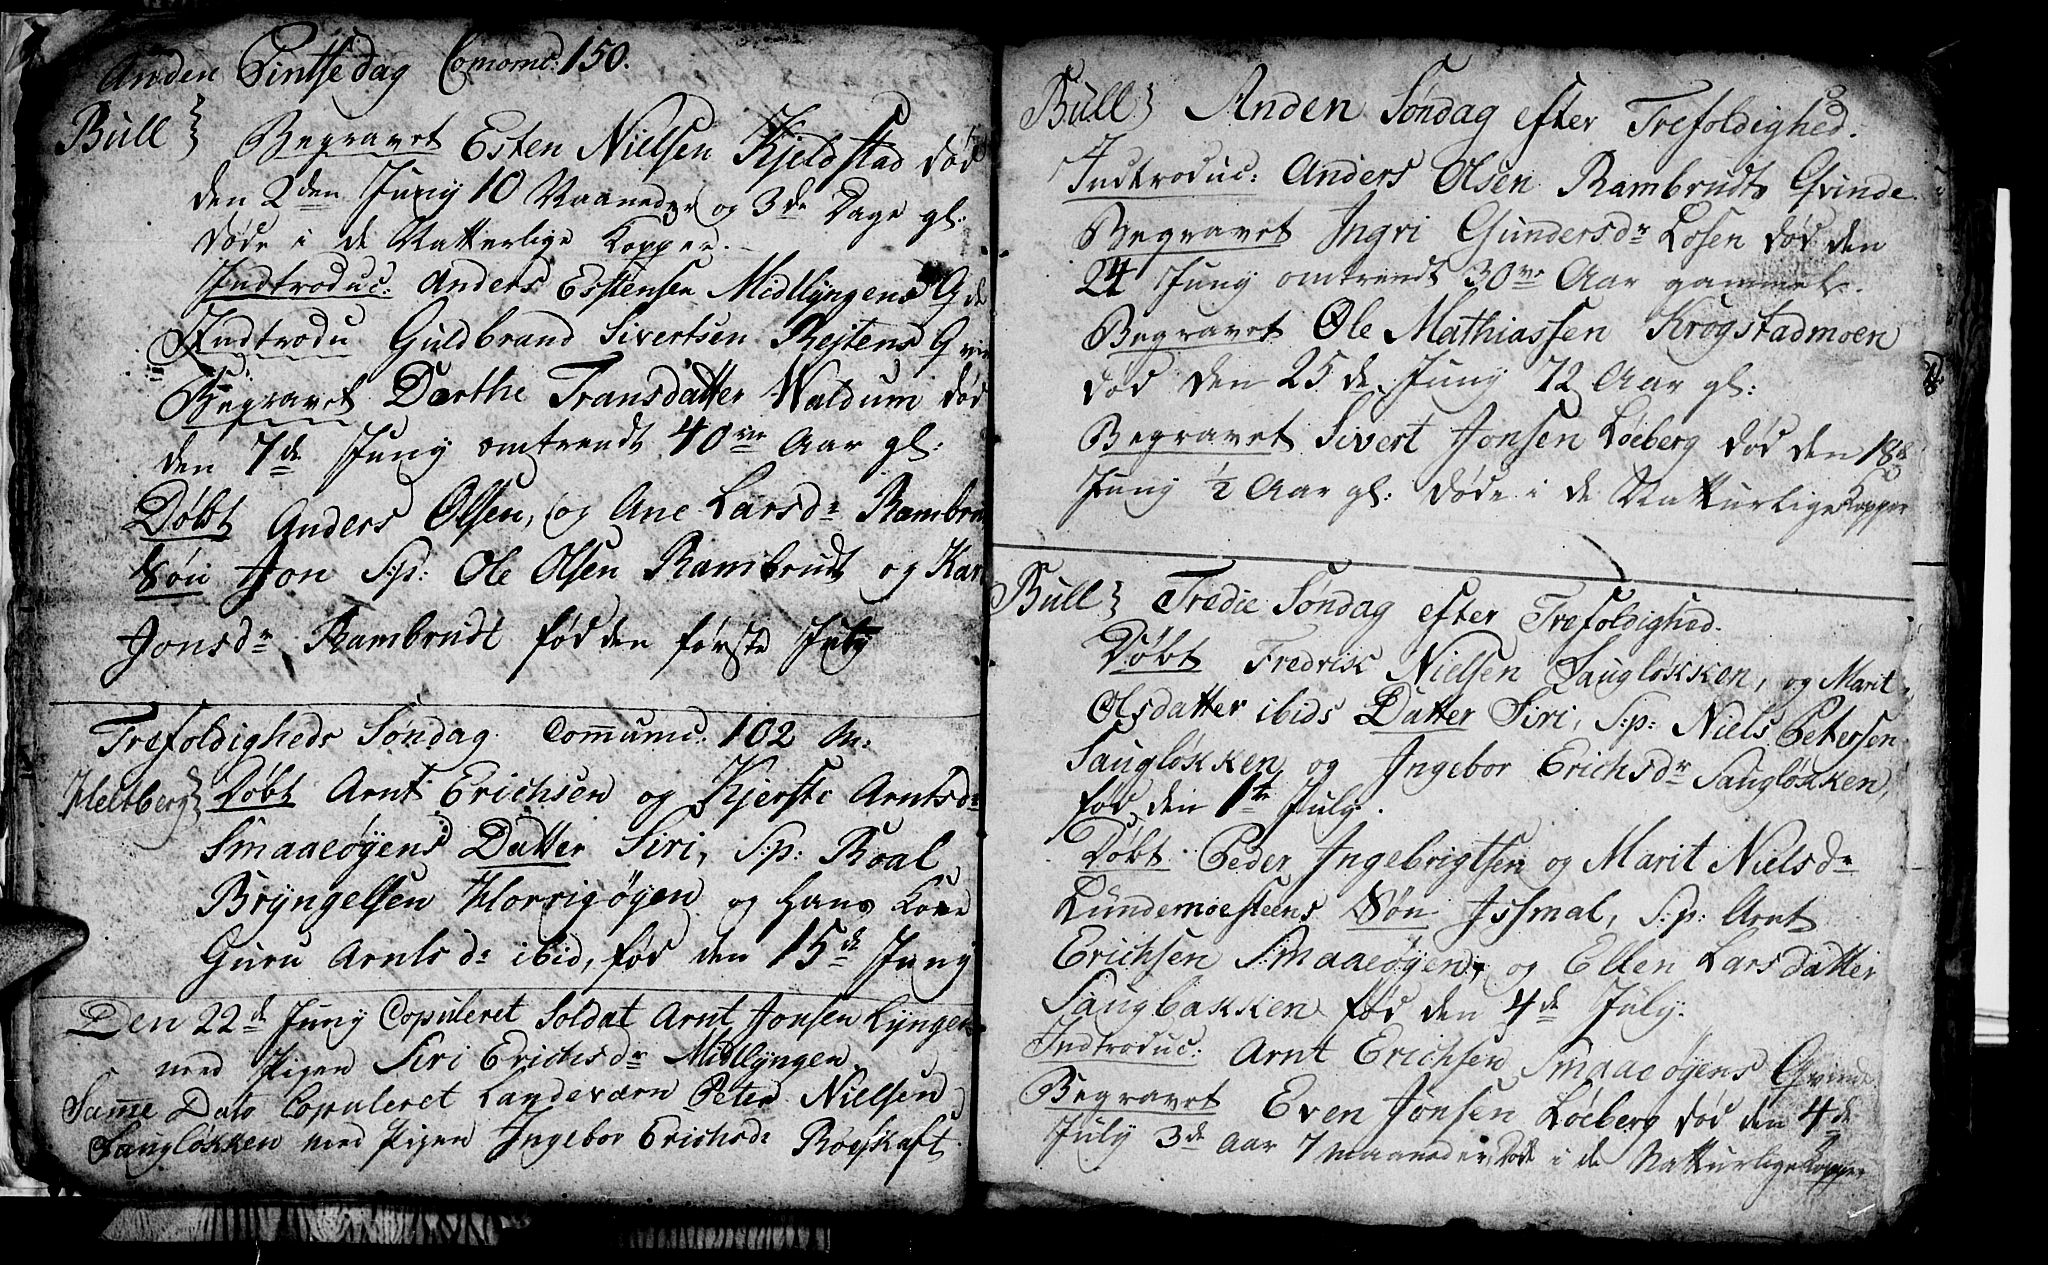 Anden Pintsedag Comomc: 150.
Bull } Begravet Esten Nielsen Kjeldstad død
den 2den Juny 10 Maaneder og 3de Dage gl:
døde i de Natterlige Kopper.
Indtroduc: Anders Estensen Midllyngens Qde
Indtrodu Guldbrand Sivertsen Rejtens Qvin
Begravet Dorthe Transdatter Waldum død
den 7de Juny omtrendt 40ve Aar gl:
Døbt Anders Olsen, og Ane Larsdr Rambru
Søn Jon S:p: Ole Olsen Rambrudt og Kari
Jonsdr Rambrudt fød den første July
Trefoldigheds Søndag Communic: 102 M:
Heltberg } Døbt Arnt Erichsen og Kjersti Arntsdr
Smaaeøyens Datter Siri, S:p: Roal
Bryngelsen Horrigøyen og hans Kone
Guru Arntsdr ibid, fød den 15de Juny
Den 22de Juny Copuleret Soldat Arnt Jonsen Lyngen
med Pigen Siri Erichsdr Midlyngen.
Samme Dato Copuleret Landeværn Peter Nielsen
Saugløkken med Pigen Ingebor Erichsdr Roeskaft
Bull } Anden Søndag efter Trefoldighed.
Indtroduc: Anders Olsen Rambrudts Qvinde
Begravet Ingri Gundersdr Losen død den
24 Juny omtrendt 30ve Aar gammel.
Begravet Ole Mathiassen Krogstadmoen
død den 25de Juny 72 Aar gl:
Begravet Sivert Jonsen Løeberg død den 18de
Juny 1/2 Aar gl: døde i de Natturlige Kopper
Bull } Tredie Søndag efter Trefoldighed.
Døbt Fredrik Nielsen Saugløkken, og Marit
Olsdatter ibids Datter Siri, S:p: Niels Petersen
Saugløkken og Ingebor Erichsdr Saugløkken,
fød den 1te July.
Døbt Peder Ingebrigtsen og Marit Nielsdr
Lundemoesteens Søn Issmal, S:p: Arnt
Erichsen Smaaeøyen, og Ellen Larsdatter
Saugbakken fød den 4de July.
Indtroduc: Arnt Erichsen Smaaeøyens Qvinde
Begravet Even Jonsen Løeberg død den 4de
July 3de Aar 7 Maaneder, døde i de Natturlige Kopper